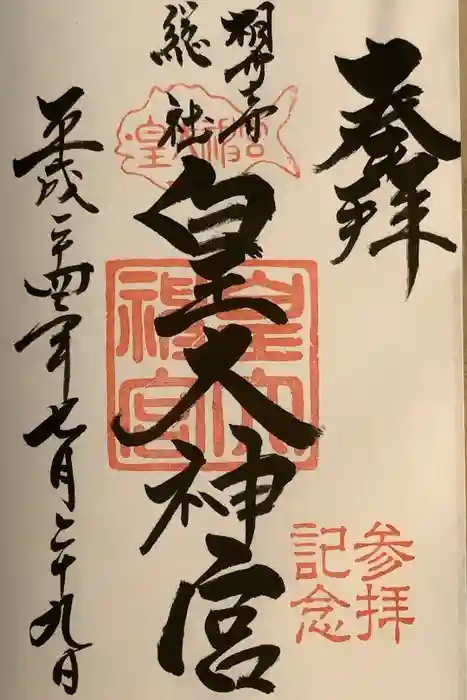 奉拝
総社
皇大神宮
皇大神宮
皇大神宮
参拝
記念
平成二十四年七月二十九日